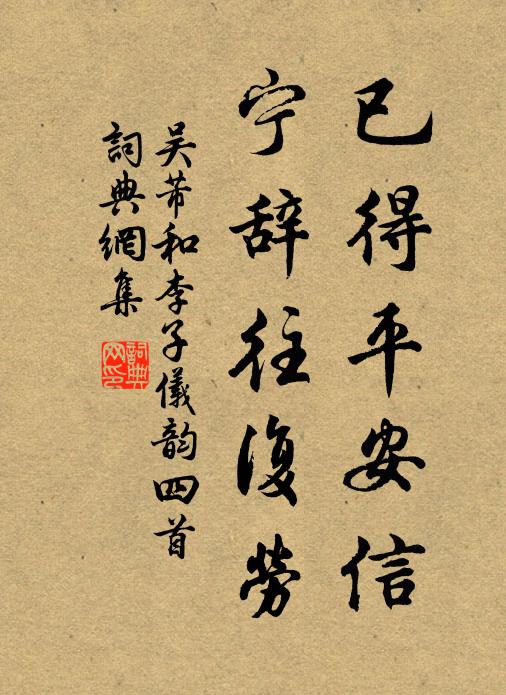 已得平安信
宁辞往復勞
吴芾和李子儀韵四首
詞典網集
詞典網印